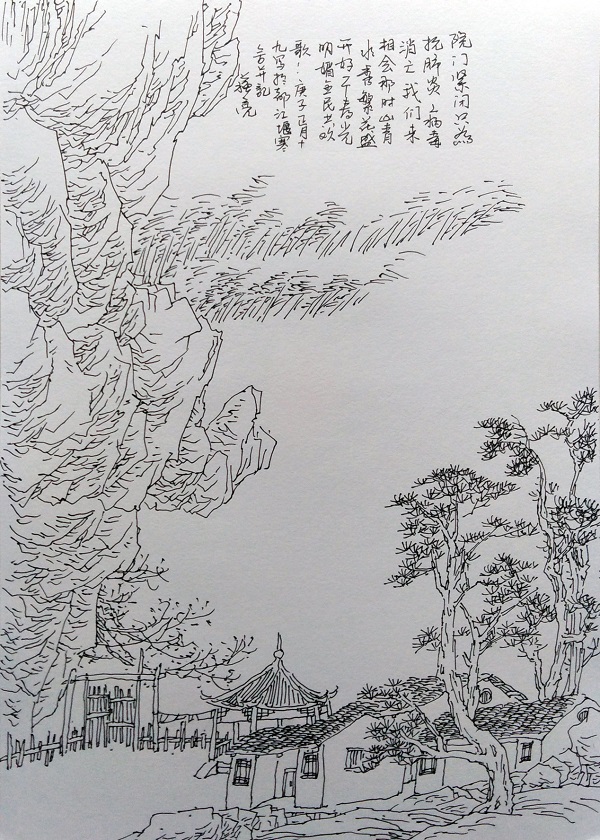 院门紧闭只为
抗肺炎病毒
消亡我们来
相会那时山青
水秀繁花盛
开好个春光
明媚全民共欢
歌：庚子正月十
九写于都江堰寒
舍并记